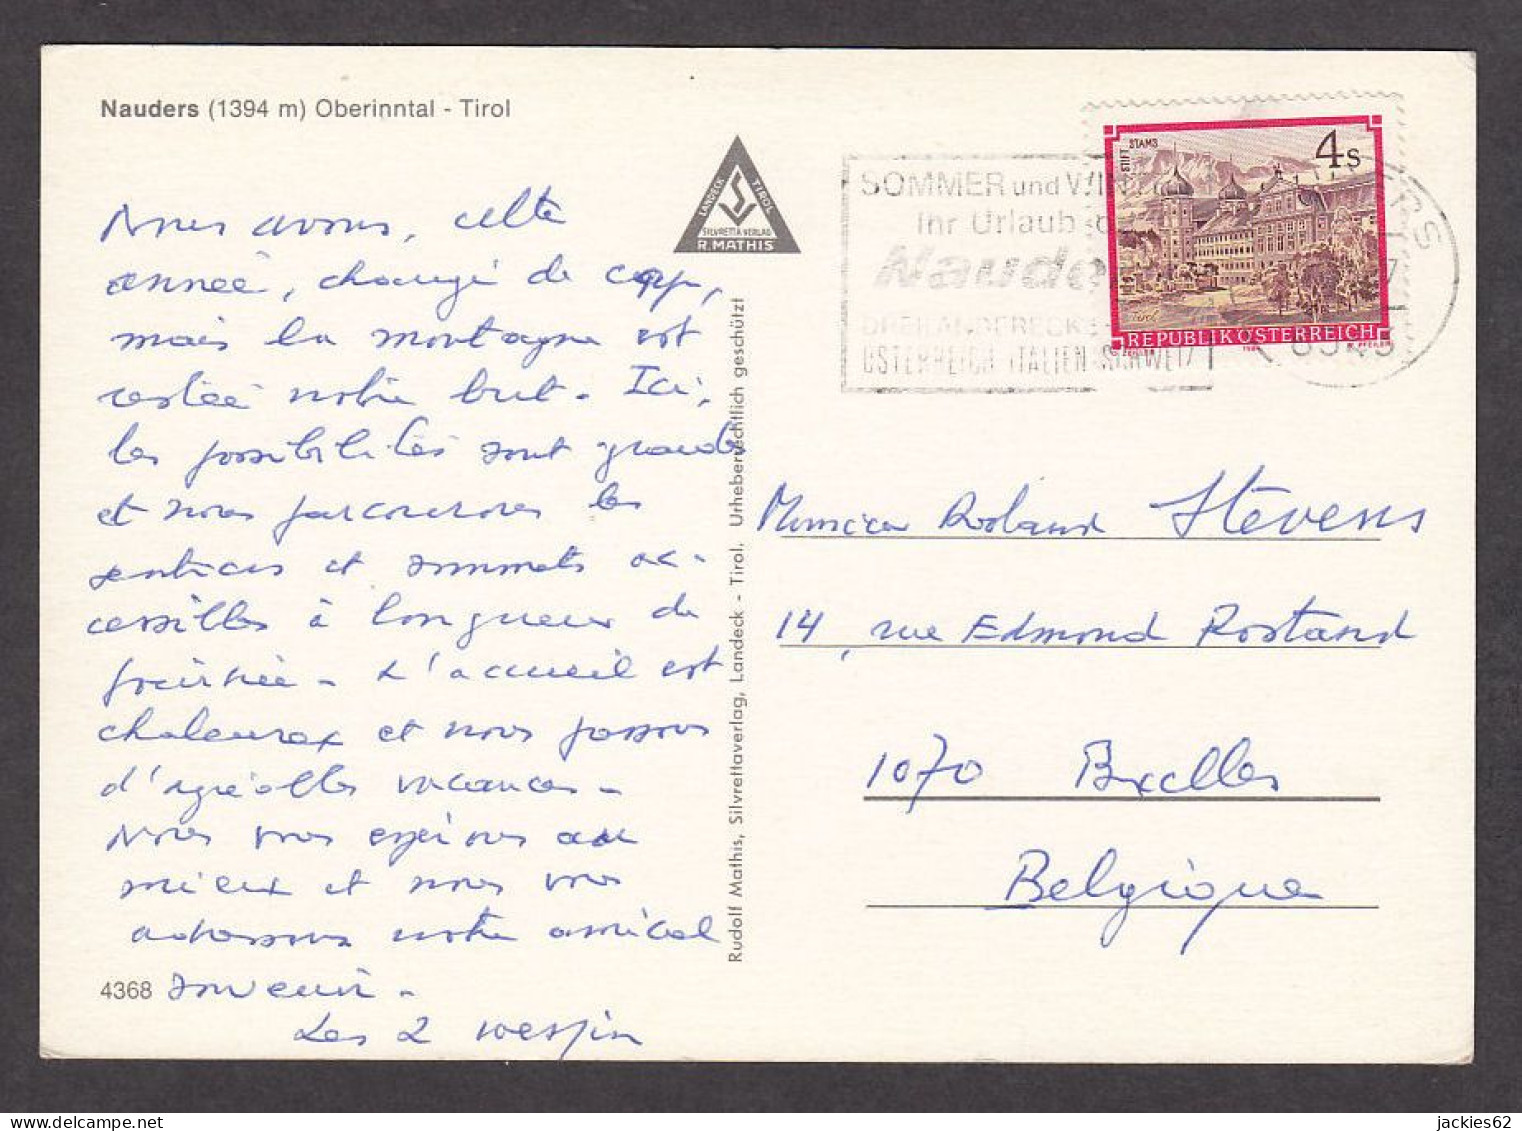 Nauders (1394 m) Oberinntal - Tirol
LANDECK TIROL
SILVRETTA VERLAG
R. MATHIS
SOMMER und WINT
Ihr Urlaub
Naude
DREILÄNDERECKE
ÖSTERREICH ITALIEN SCHWEIZ
STIFT STAMS
4 S
Tirol
REPUBLIK ÖSTERREICH
ERS
6543
Nous avons, cette
année, changé de cap,
mais la montagne est
restée notre but. Ici,
les possibilités sont grandes
et nous parcourons les
sentiers et sommets ac-
cessibles à longueur de
journée. L'accueil est
chaleureux et nous passons
d'agréables vacances.
Nous vous espérons au
mieux et nous vous
adressons notre amical
souvenir.
Les 2
4368
Rudolf Mathis, Silvrettaverlag, Landeck - Tirol. Urheberrechtlich geschützt
Monsieur Roland Stevens
14, rue Edmond Rostand
1070 Bxelles
Belgique
jackies62